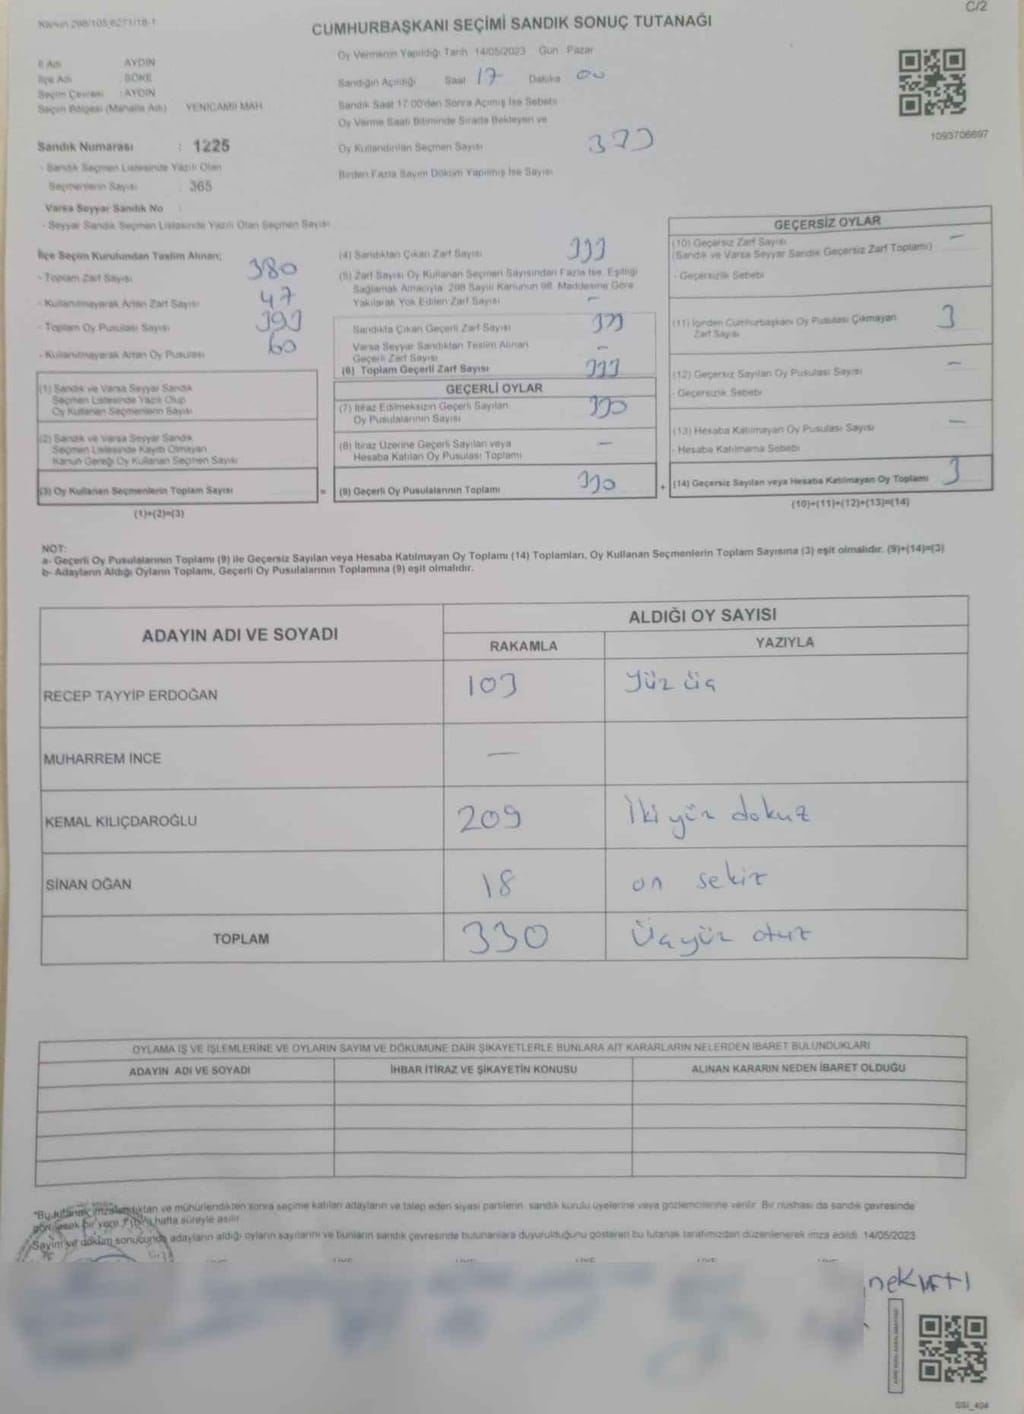 Kanun 298/105,6271/18-1
C/2
CUMHURBAŞKANI SEÇİMİ SANDIK SONUÇ TUTANAĞI
İl Adı AYDIN
İlçe Adı SÖKE
Seçim Çevresi : AYDIN
Seçim Bölgesi (Mahalle Adı) YENICAMII MAH
Sandık Numarası : 1225
- Sandık Seçmen Listesinde Yazılı Olan
Seçmenlerin Sayısı 365
Varsa Seyyar Sandık No
- Seyyar Sandık Seçmen Listesinde Yazılı Olan Seçmen Sayısı
Oy Vermenin Yapıldığı Tarih 14/05/2023 Gün Pazar
Sandığın Açıldığı Saat 17 Dakika 00
Sandık Saat 17:00'den Sonra Açımış İse Sebebi
Oy Verme Saati Bitiminde Sırada Bekleyen ve
Oy Kullandırılan Seçmen Sayısı
Birden Fazla Sayım Döküm Yapılmış İse Sayısı
1093706697
İlçe Seçim Kurulundan Teslim Alınan;
- Toplam Zarf Sayısı 380
- Kullanılmayarak Artan Zarf Sayısı 47
- Toplam Oy Pusulası Sayısı 393
- Kullanılmayarak Artan Oy Pusulası 60
(1) Sandık ve Varsa Seyyar Sandık
Seçmen Listesinde Yazılı Olup
Oy Kullanan Seçmenlerin Sayısı
(2) Sandık ve Varsa Seyyar Sandık
Seçmen Listesinde Kayıtlı Olmayan
Kanun Gereği Oy Kullanan Seçmen Sayısı
(3) Oy Kullanan Seçmenlerin Toplam Sayısı =
(1)+(2)=(3)
(4) Sandıktan Çıkan Zarf Sayısı 333
(5) Zarf Sayısı Oy Kullanan Seçmen Sayısından Fazla İse, Eşitliği
Sağlamak Amacıyla; 298 Sayılı Kanunun 98. Maddesine Göre
Yakılarak Yok Edilen Zarf Sayısı -
Sandıkta Çıkan Geçerli Zarf Sayısı 333
Varsa Seyyar Sandıktan Teslim Alınan
Geçerli Zarf Sayısı -
(6) Toplam Geçerli Zarf Sayısı 333
GEÇERLİ OYLAR
(7) İtiraz Edilmeksizin Geçerli Sayılan
Oy Pusulalarının Sayısı 330
(8) İtiraz Üzerine Geçerli Sayılan veya
Hesaba Katılan Oy Pusulası Toplamı -
(9) Geçerli Oy Pusulalarının Toplamı 330 +
GEÇERSİZ OYLAR
(10) Geçersiz Zarf Sayısı -
(Sandık ve Varsa Seyyar Sandık Geçersiz Zarf Toplamı)
- Geçersizlik Sebebi
(11) İçinden Cumhurbaşkanı Oy Pusulası Çıkmayan 3
Zarf Sayısı
(12) Geçersiz Sayılan Oy Pusulası Sayısı -
- Geçersizlik Sebebi
(13) Hesaba Katılmayan Oy Pusulası Sayısı -
- Hesaba Katılmama Sebebi
(14) Geçersiz Sayılan veya Hesaba Katılmayan Oy Toplamı 3
(10)+(11)+(12)+(13)=(14)
NOT:
a- Geçerli Oy Pusulalarının Toplamı (9) ile Geçersiz Sayılan veya Hesaba Katılmayan Oy Toplamı (14) Toplamları, Oy Kullanan Seçmenlerin Toplam Sayısına (3) eşit olmalıdır. (9)+(14)=(3)
b- Adayların Aldığı Oyların Toplamı, Geçerli Oy Pusulalarının Toplamına (9) eşit olmalıdır.
ADAYIN ADI VE SOYADI ALDIĞI OY SAYISI
RAKAMLA YAZIYLA
RECEP TAYYİP ERDOĞAN 103 Yüz üç
MUHARREM İNCE —
KEMAL KILIÇDAROĞLU 209 İki yüz dokuz
SİNAN OĞAN 18 on sekiz
TOPLAM 330 Üçyüz otuz
OYLAMA İŞ VE İŞLEMLERİNE VE OYLARIN SAYIM VE DÖKÜMÜNE DAİR ŞİKAYETLERLE BUNLARA AİT KARARLARIN NELERDEN İBARET BULUNDUKLARI
ADAYIN ADI VE SOYADI İHBAR İTİRAZ VE ŞİKAYETİN KONUSU ALINAN KARARIN NEDEN İBARET OLDUĞU
"Bu tutanak imzalandıktan ve mühürlendikten sonra seçime katılan adayların ve talep eden siyasi partilerin sandık kurulu üyelerine veya gözlemcilerine verilir. Bir nüshası da sandık çevresinde
görülecek bir yere 1 (bir) hafta süreyle asılır.
Sayım ve döküm sonucunda adayların aldığı oyların sayılarını ve bunların sandık çevresinde bulunanlara duyurulduğunu gösteren bu tutanak tarafımızdan düzenlenerek imza edildi. 14/05/2023
SSI_404